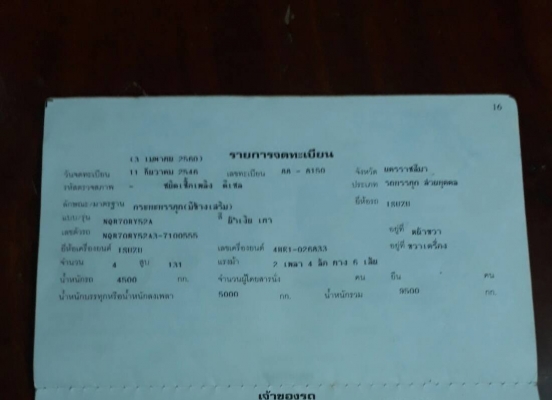 16
รายการจดทะเบียน
(3 เมษายน 2560)
วันจดทะเบียน 11 ธันวาคม 2546 เลขทะเบียน 88 - 8150 จังหวัด นครราชสีมา
รหัสตรวจสภาพ - ชนิดเชื้อเพลิง ดีเซล ประเภท รถบรรทุก ส่วนบุคคล
ลักษณะ/มาตรฐาน กระบะบรรทุก(มีข้างเสริม) ยี่ห้อรถ ISUZU
แบบ/รุ่น NQR70RY52A สี ฟ้า,เงิน เทา
เลขตัวรถ NQR70RY52A3-7100555 อยู่ที่
ยี่ห้อเครื่องยนต์ ISUZU เลขเครื่องยนต์ 4HE1-026833 อยู่ที่ ขวาเครื่อง
จำนวน 4 สูบ 131 แรงม้า 2 เพลา 4 ล้อ ยาง 6 เส้น
น้ำหนักรถ 4500 กก. จำนวนผู้โดยสารนั่ง คน ยืน คน
น้ำหนักบรรทุกหรือน้ำหนักลงเพลา 5000 กก. น้ำหนักรวม 9500 กก.
เจ้าของรถ